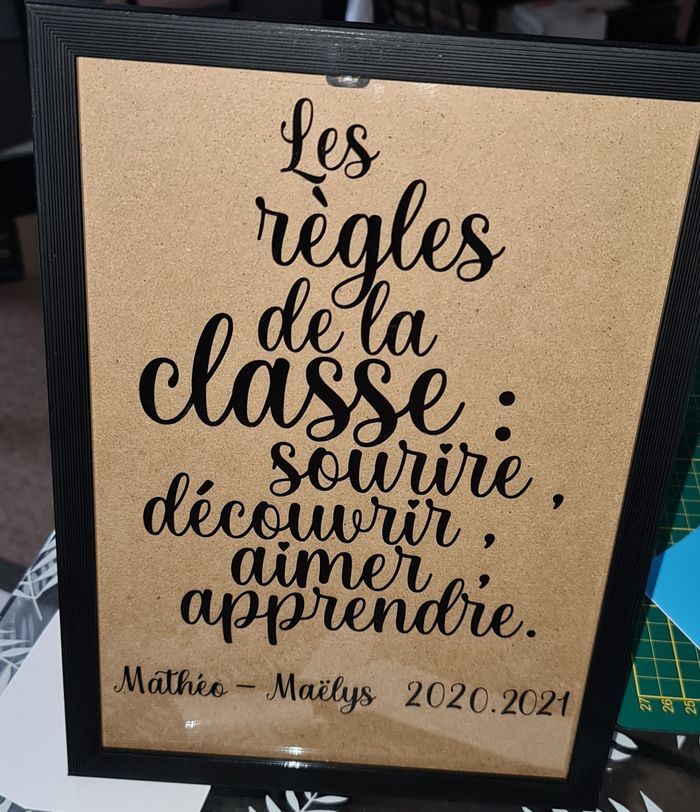 Les
règles
de la
classe :
sourire ,
découvrir ,
aimer ,
apprendre.
Mathéo - Maëlys 2020.2021
27
26
25